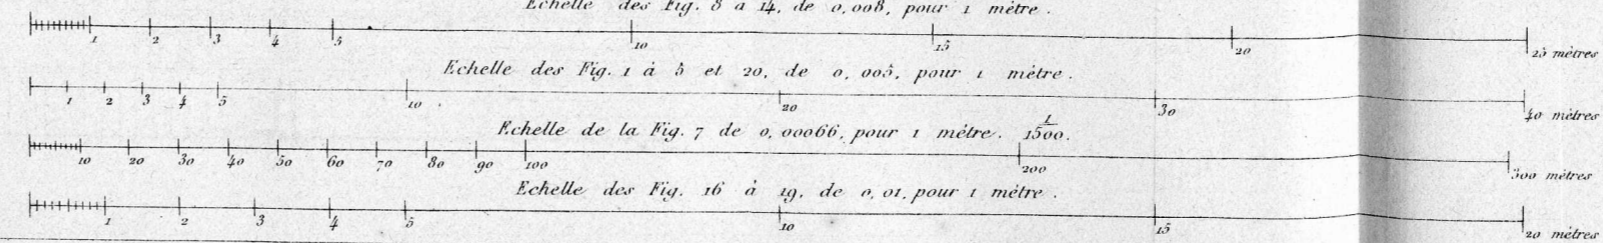 Echelle des Fig. 8 à 14, de 0,008, pour 1 mètre.
1 2 3 4 5 10 15 20 25 mètres
Echelle des Fig. 1 à 5 et 20, de 0,005, pour 1 mètre.
1 2 3 4 5 10 20 30 40 mètres
Echelle de la Fig. 7 de 0,00066, pour 1 mètre. 1/1500.
10 20 30 40 50 60 70 80 90 100 200 300 mètres
Echelle des Fig. 16 à 19, de 0,01, pour 1 mètre.
1 2 3 4 5 10 15 20 mètres